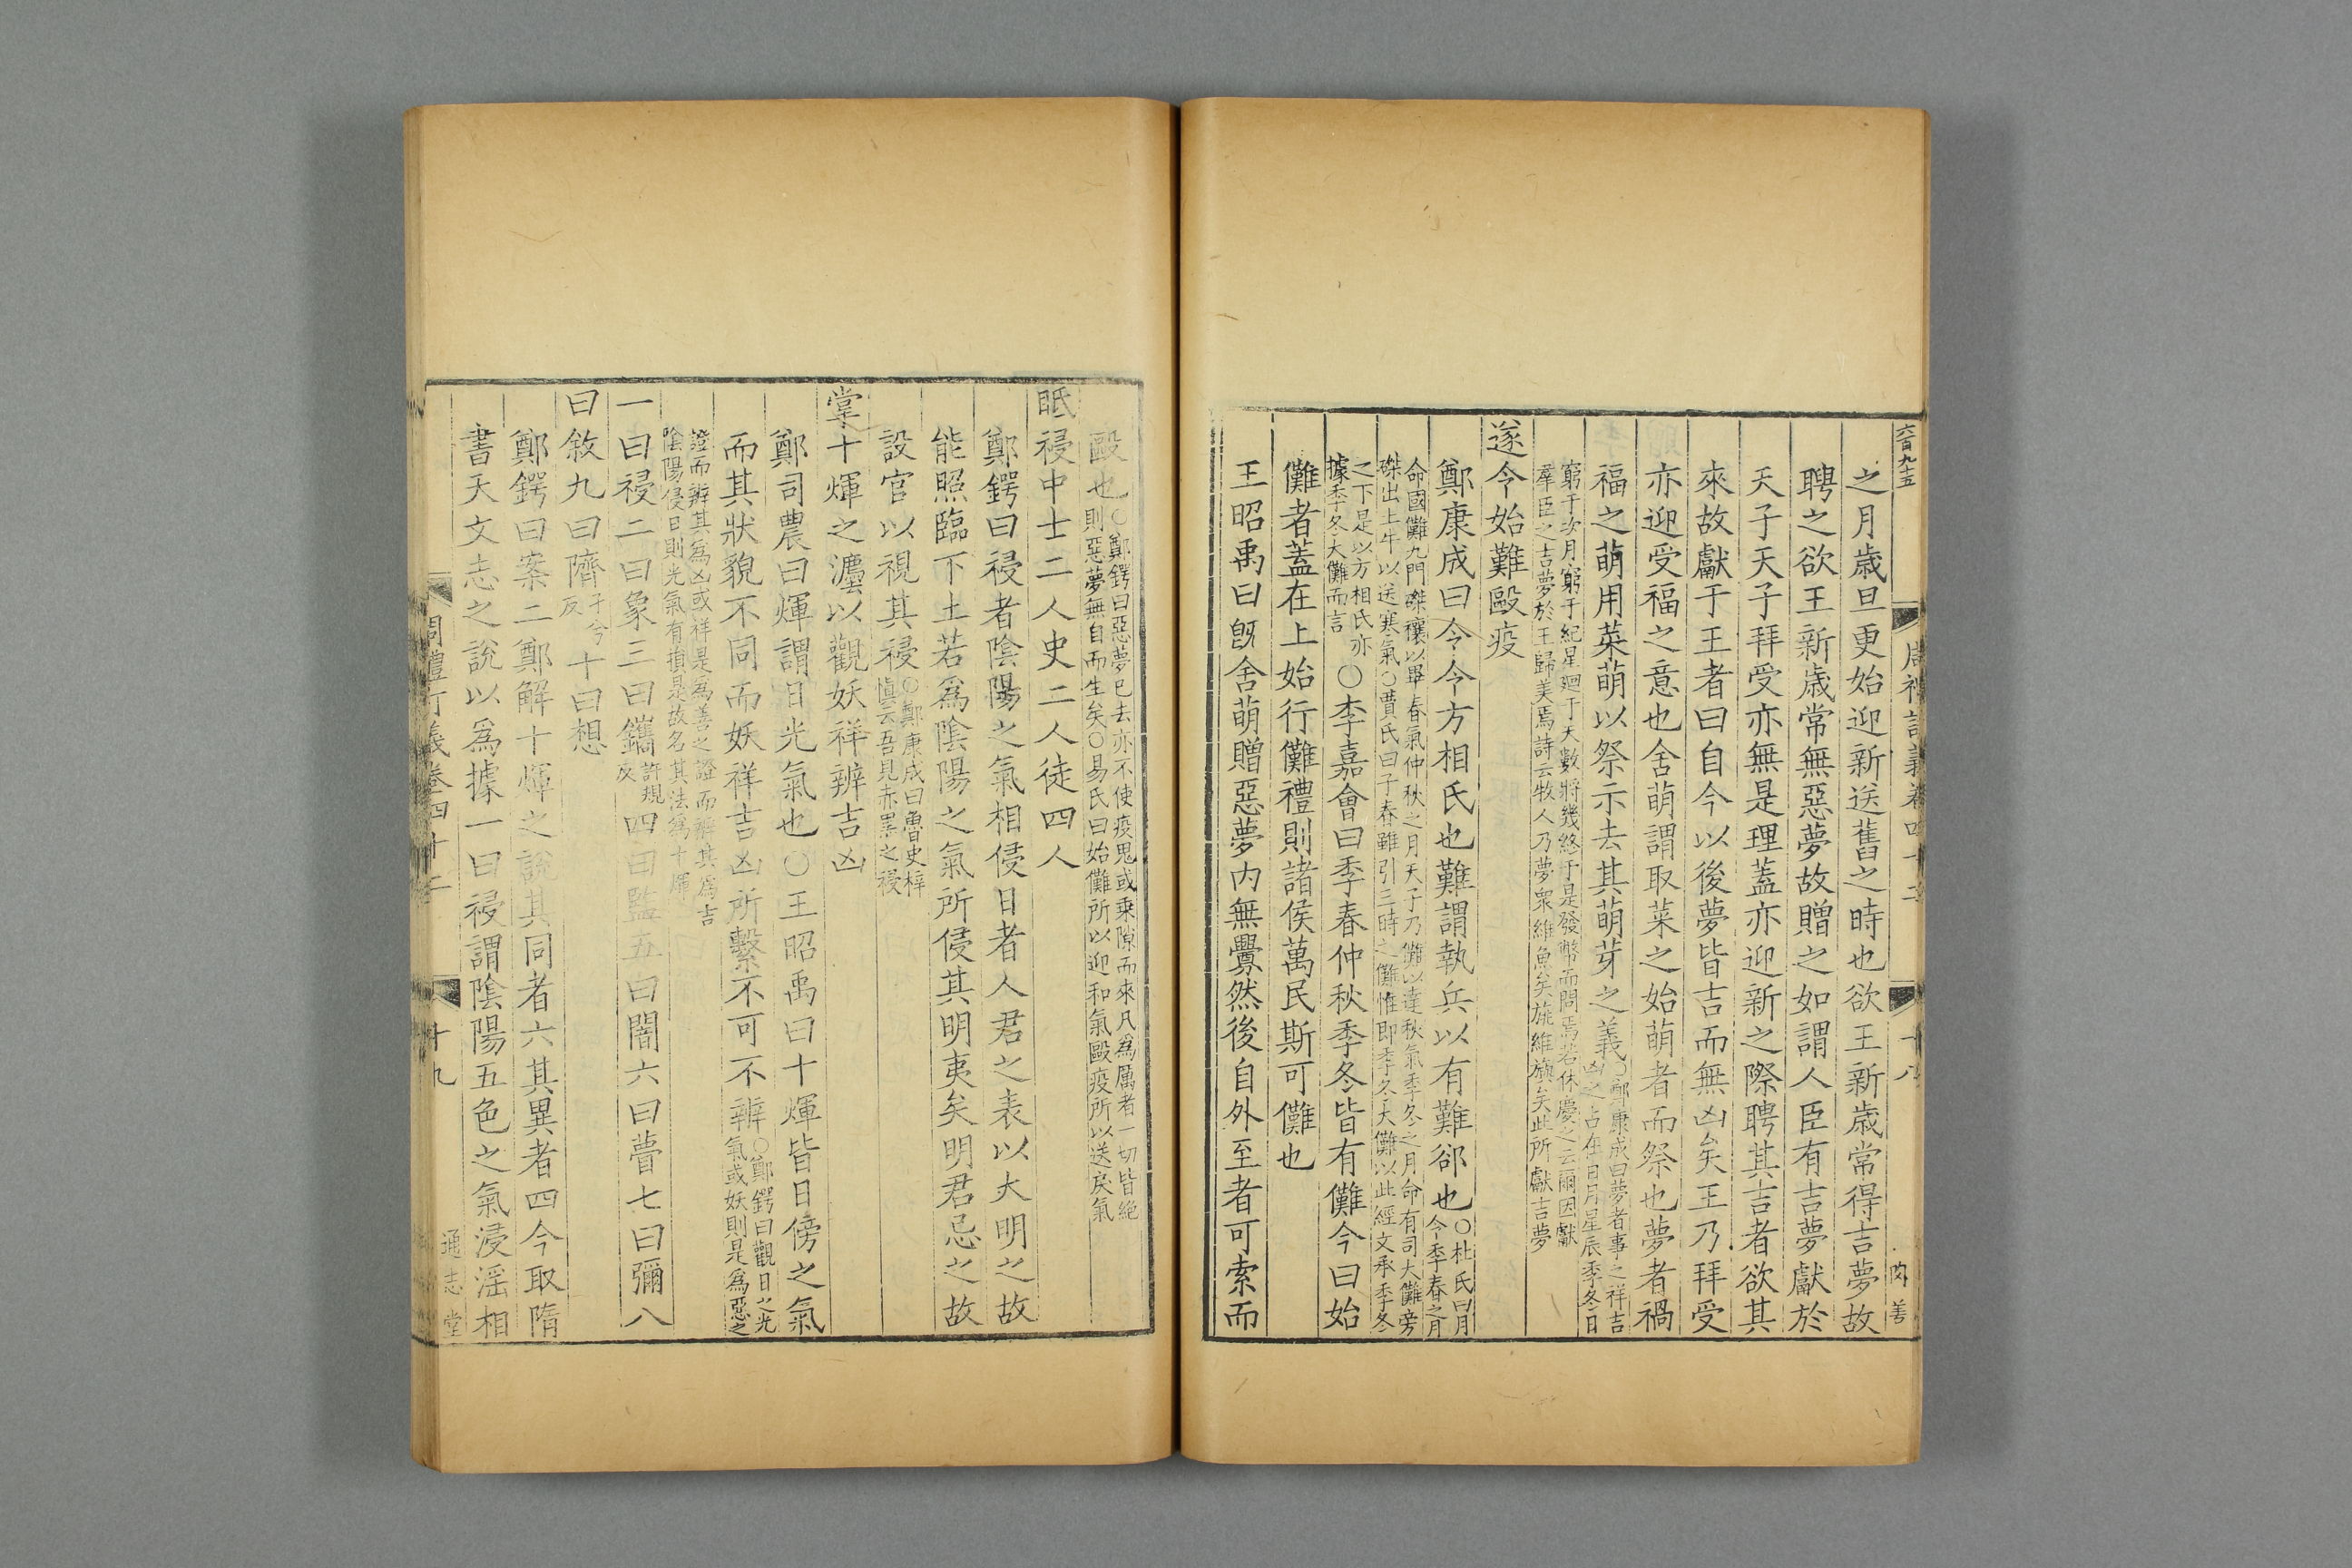 六百九十五
周禮訂義卷四十二
十八
肉 善
之月歲旦更始迎新送舊之時也欲王新歲常得吉夢故
聘之欲王新歲常無惡夢故贈之如謂人臣有吉夢獻於
天子天子拜受亦無是理蓋亦迎新之際聘其吉者欲其
來故獻于王者曰自今以後夢皆吉而無凶矣王乃拜受
亦迎受福之意也舍萌謂取菜之始萌者而祭也夢者禍
福之萌用菜萌以祭示去其萌芽之義○鄭康成曰夢者事之祥吉
凶之占在日月星辰季冬日
窮于次月窮于紀星迴于天數將幾終于是發幣而問焉若休慶之云爾因獻
羣臣之吉夢於王歸美焉詩云牧人乃夢衆維魚矣旐維旟矣此所獻吉夢
遂令始難毆疫
鄭康成曰令令方相氏也難謂執兵以有難郤也○杜氏曰月
令季春之月
命國儺九門磔禳以畢春氣仲秋之月天子乃儺以達秋氣季冬之月命有司大儺旁
磔出土牛以送寒氣○賈氏曰子春雖引三時之儺惟即季冬大儺以此經文承季冬
之下是以方相氏亦
據季冬大儺而言○李嘉會曰季春仲秋季冬皆有儺今曰始
儺者蓋在上始行儺禮則諸侯萬民斯可儺也
王昭禹曰旣舍萌贈惡夢內無釁然後自外至者可索而
毆也○鄭鍔曰惡夢已去亦不使疫鬼或乘隙而來凡為厲者一切皆絕
則惡夢無自而生矣○易氏曰始儺所以迎和氣毆疫所以送戾氣
眡祲中士二人史二人徒四人
鄭鍔曰祲者陰陽之氣相侵日者人君之表以大明之故
能照臨下土若為陰陽之氣所侵其明夷矣明君忌之故
設官以視其祲○鄭康成曰魯史梓
慎云吾見赤黑之祲
掌十煇之灋以觀妖祥辨吉凶
鄭司農曰煇謂日光氣也○王昭禹曰十煇皆日傍之氣
而其狀貌不同而妖祥吉凶所繫不可不辨○鄭鍔曰觀日之光
氣或妖則是為惡之
證而辨其為凶或祥是為善之證而辨其為吉
陰陽侵日則光氣有損是故名其法為十煇
一曰祲二曰象三曰鑴許規
反四曰監五曰闇六曰瞢七曰彌八
曰敘九曰隮子兮
反十曰想
鄭鍔曰案二鄭解十煇之說其同者六其異者四今取隋
書天文志之說以為據一曰祲謂陰陽五色之氣浸淫相
周禮訂義卷四十二
十九
通志堂